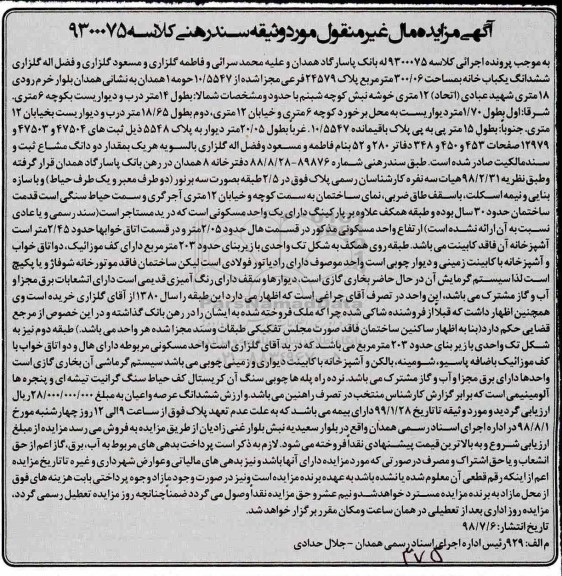 آگهی مزایده مال غیرمنقول مورد وثیقه سند رهنی کلاسه ۹۳۰۰۰۷۵
به موجب پرونده اجرائی کلاسه ۹۳۰۰۰۷۵ له بانک پاسارگاد همدان و علیه محمد سرائی و فاطمه گلزاری و مسعود گلزاری و فضل اله گلزاری
ششدانگ یکباب خانه بمساحت ۳۰۰/۰۶ مترمربع پلاک ۲۴۵۷۹ فرعی مجزا شده از ۱۰/۵۵۴۷ حومه ۱ همدان به نشانی همدان بلوار خرم رودی
۱۸ متری شهید عبادی (اتحاد) ۱۲ متری خوشه نبش کوچه شبنم با حدود و مشخصات شمالا: بطول ۱۴ متر درب و دیواریست بکوچه ۶ متری.
شرقا: اول بطول ۱/۷۰ متر دیواریست به محل برخورد کوچه ۶ متری و خیابان ۱۲ متری، دوم بطول ۱۸/۶۵ متر درب و دیواریست بخیابان ۱۲
متری. جنوبا: بطول ۱۵ متر پی به پی پلاک باقیمانده ۱۰/۵۵۴۷. غربا بطول ۲۰/۰۵ متر دیوار به پلاک ۵۵۴۸ ذیل ثبت های ۴۷۵۰۴ و ۴۷۵۰۳ و
۱۲۹۷۹ صفحات ۴۵۳ و ۴۵۰ و ۳۴۸ دفاتر ۲۸۰ و ۵۲ بنام فاطمه و مسعود و فضل اله گلزاری بالسویه هر یک بمقدار دو دانگ مشاع ثبت و
سند مالکیت صادر شده است. طبق سند رهنی شماره ۸۹۸۷۶-۸۸/۸/۲۸ دفترخانه ۸ همدان در رهن بانک پاسارگاد همدان قرار گرفته
و طبق نظریه ۹۸/۲/۳۱ هیات سه نفره کارشناسان رسمی پلاک فوق در ۲/۵ طبقه بصورت سه بر نور (دو طرف معبر و یک طرف حیاط) و با سازه
بنایی و نیمه اسکلت، باسقف طاق ضربی، نمای ساختمان به سمت کوچه و خیابان ۱۲ متری آجرگری و سمت حیاط سنگی است قدمت
ساختمان حدود ۳۰ سال بوده و طبقه همکف علاوه بر پارکینگ دارای یک واحد مسکونی است که در ید مستاجر است (سند رسمی و یا عادی
نسبت به آن ارائه نشده است) ارتفاع واحد مسکونی مذکور در قسمت هال حدود ۲/۰۵ متر و در قسمت اتاق خوابها حدود ۲/۴۵ متر است
آشپزخانه آن فاقد کابینت می باشد. طبقه روی همکف به شکل تک واحدی با زیربنای حدود ۲۰۳ مترمربع دارای کف موزائیک، دو اتاق خواب
و آشپزخانه با کابینت زمینی و دیوار چوبی است واحد موصوف دارای رادیاتور فولادی است لیکن ساختمان فاقد موتورخانه شوفاژ و یا پکیج
است لذا سیستم گرمایش آن در حال حاضر بخاری گازی است. دیوارها و سقف دارای رنگ آمیزی قدیمی است دارای انشعابات برق مجزا و
آب و گاز مشترک می باشد، این واحد در تصرف آقای چراغی است که اظهار می دارد این طبقه را سال ۱۳۸۰ از آقای گلزاری خریده است وی
همچنین اظهار داشت که قبلا از فروشنده شاکی شده چرا که ملک فروخته شده به ایشان را در رهن بانک گذاشته و در این خصوص از مرجع
قضایی حکم دارد (بنا به اظهار ساکنین ساختمان فاقد صورت مجلس تفکیکی طبقات و سند مجزا شده هر واحد می باشد.) طبقه دوم نیز به
شکل تک واحدی با زیربنای حدود ۲۰۳ مترمربع می باشد که در ید آقای گلزاری است واحد مسکونی مربوطه دارای هال و دو اتاق خواب با
کف موزائیک باضافه پاسیو، شومینه، بالکن و آشپزخانه با کابینت دیواری و زمینی چوبی می باشد سیستم گرمایشی آن بخاری گازی است
واحدها دارای برق مجزا و آب و گاز مشترک می باشد. نرده راه پله ها چوبی سنگ آن کریستال کف حیاط سنگ گرانیت تیشه ای و پنجره ها
آلومینیمی است که برابر گزارش کارشناس منتخب در تصرف راهنین می باشد. و ارزش ششدانگ عرصه و اعیان به مبلغ ۲۸/۰۰۰/۰۰۰/۰۰۰ ریال
ارزیابی گردید و مورد وثیقه تا تاریخ ۹۹/۱/۲۸ دارای بیمه می باشد که به علت عدم تعهد پلاک فوق از ساعت ۹ الی ۱۲ روز چهارشنبه مورخ
۹۸/۸/۱ در اداره اجرای اسناد رسمی همدان واقع در بلوار سعیدیه نبش بلوار غنی زادیان از طریق مزایده به فروش می رسد مزایده از مبلغ
ارزیابی شروع و به بالاترین قیمت پیشنهادی نقدا فروخته می شود. لازم به ذکر است پرداخت بدهی های مربوط به آب، برق، گاز اعم از حق
انشعاب و یا حق اشتراک و مصرف در صورتی که مورد مزایده دارای آنها باشد و نیز بدهی های مالیاتی و عوارض شهرداری و غیره تا تاریخ مزایده
اعم از اینکه رقم قطعی آن معلوم شده یا نشده باشد به عهده برنده مزایده است و نیز در صورت وجود مازاد وجوه پرداختی بابت هزینه های فوق
از محل مازاد به برنده مزایده مسترد خواهد شد و نیم عشر و حق مزایده نقدا وصول می گردد ضمنا چنانچه روز مزایده تعطیل رسمی گردد،
مزایده روز اداری بعد از تعطیلی در همان ساعت و مکان مقرر برگزار خواهد شد.
تاریخ انتشار: ۹۸/۷/۶
م الف: ۹۲۹ رئیس اداره اجرای اسناد رسمی همدان - جلال حدادی